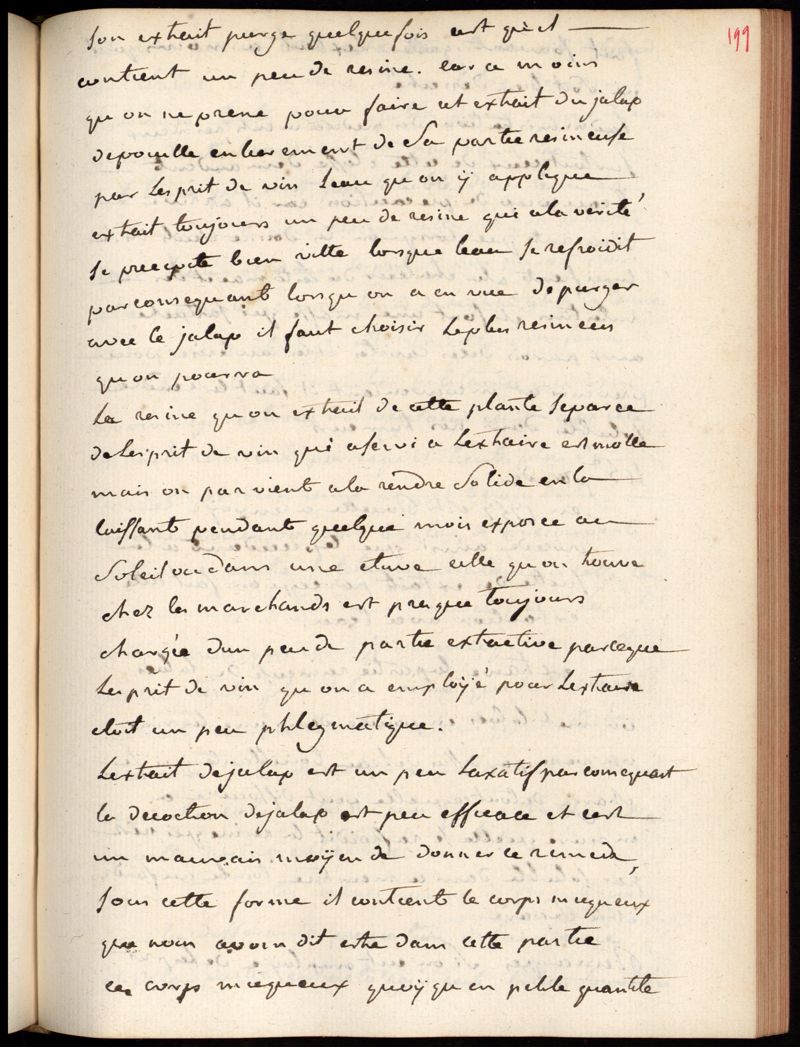 199
son extrait purge quelquefois cest qu'il
contient un peu de resine. car a moins
qu on ne prene pour faire cet extrait du jalap
depouille entierement de sa partie resineuse
par lesprit de vin leau qu on ÿ applique
extrait toujours un peu de resine qui a la verité
se precipite bien vitte lorsque leau se refroidit
par consequant lorsqu on a en vue de purger
avec le jalap il faut choisir le plus resineux
qu on pourra
La resine qu on extrait de cette plante separee
de lesprit de vin qui a servi a lextraire est molle
mais on parvient a la rendre solide en la
laissant pendant quelque mois exposee au
soleil ou dans une etuve celle qu on trouve
chez les marchands est presque toujours
chargée dun peu de partie extractive parceque
lesprit de vin qu on a emploÿé pour lextraire
etoit un peu phlegmatique.
Lextrait de jalap est un peu laxatif par consequant
la decoction de jalap est peu efficace et cest
un mauvais moÿen de donner ce remede,
sous cette forme il contient le corps muqueux
que nous avons dit estre dans cette partie
ce corps muqueux quoÿ qu en petite quantite